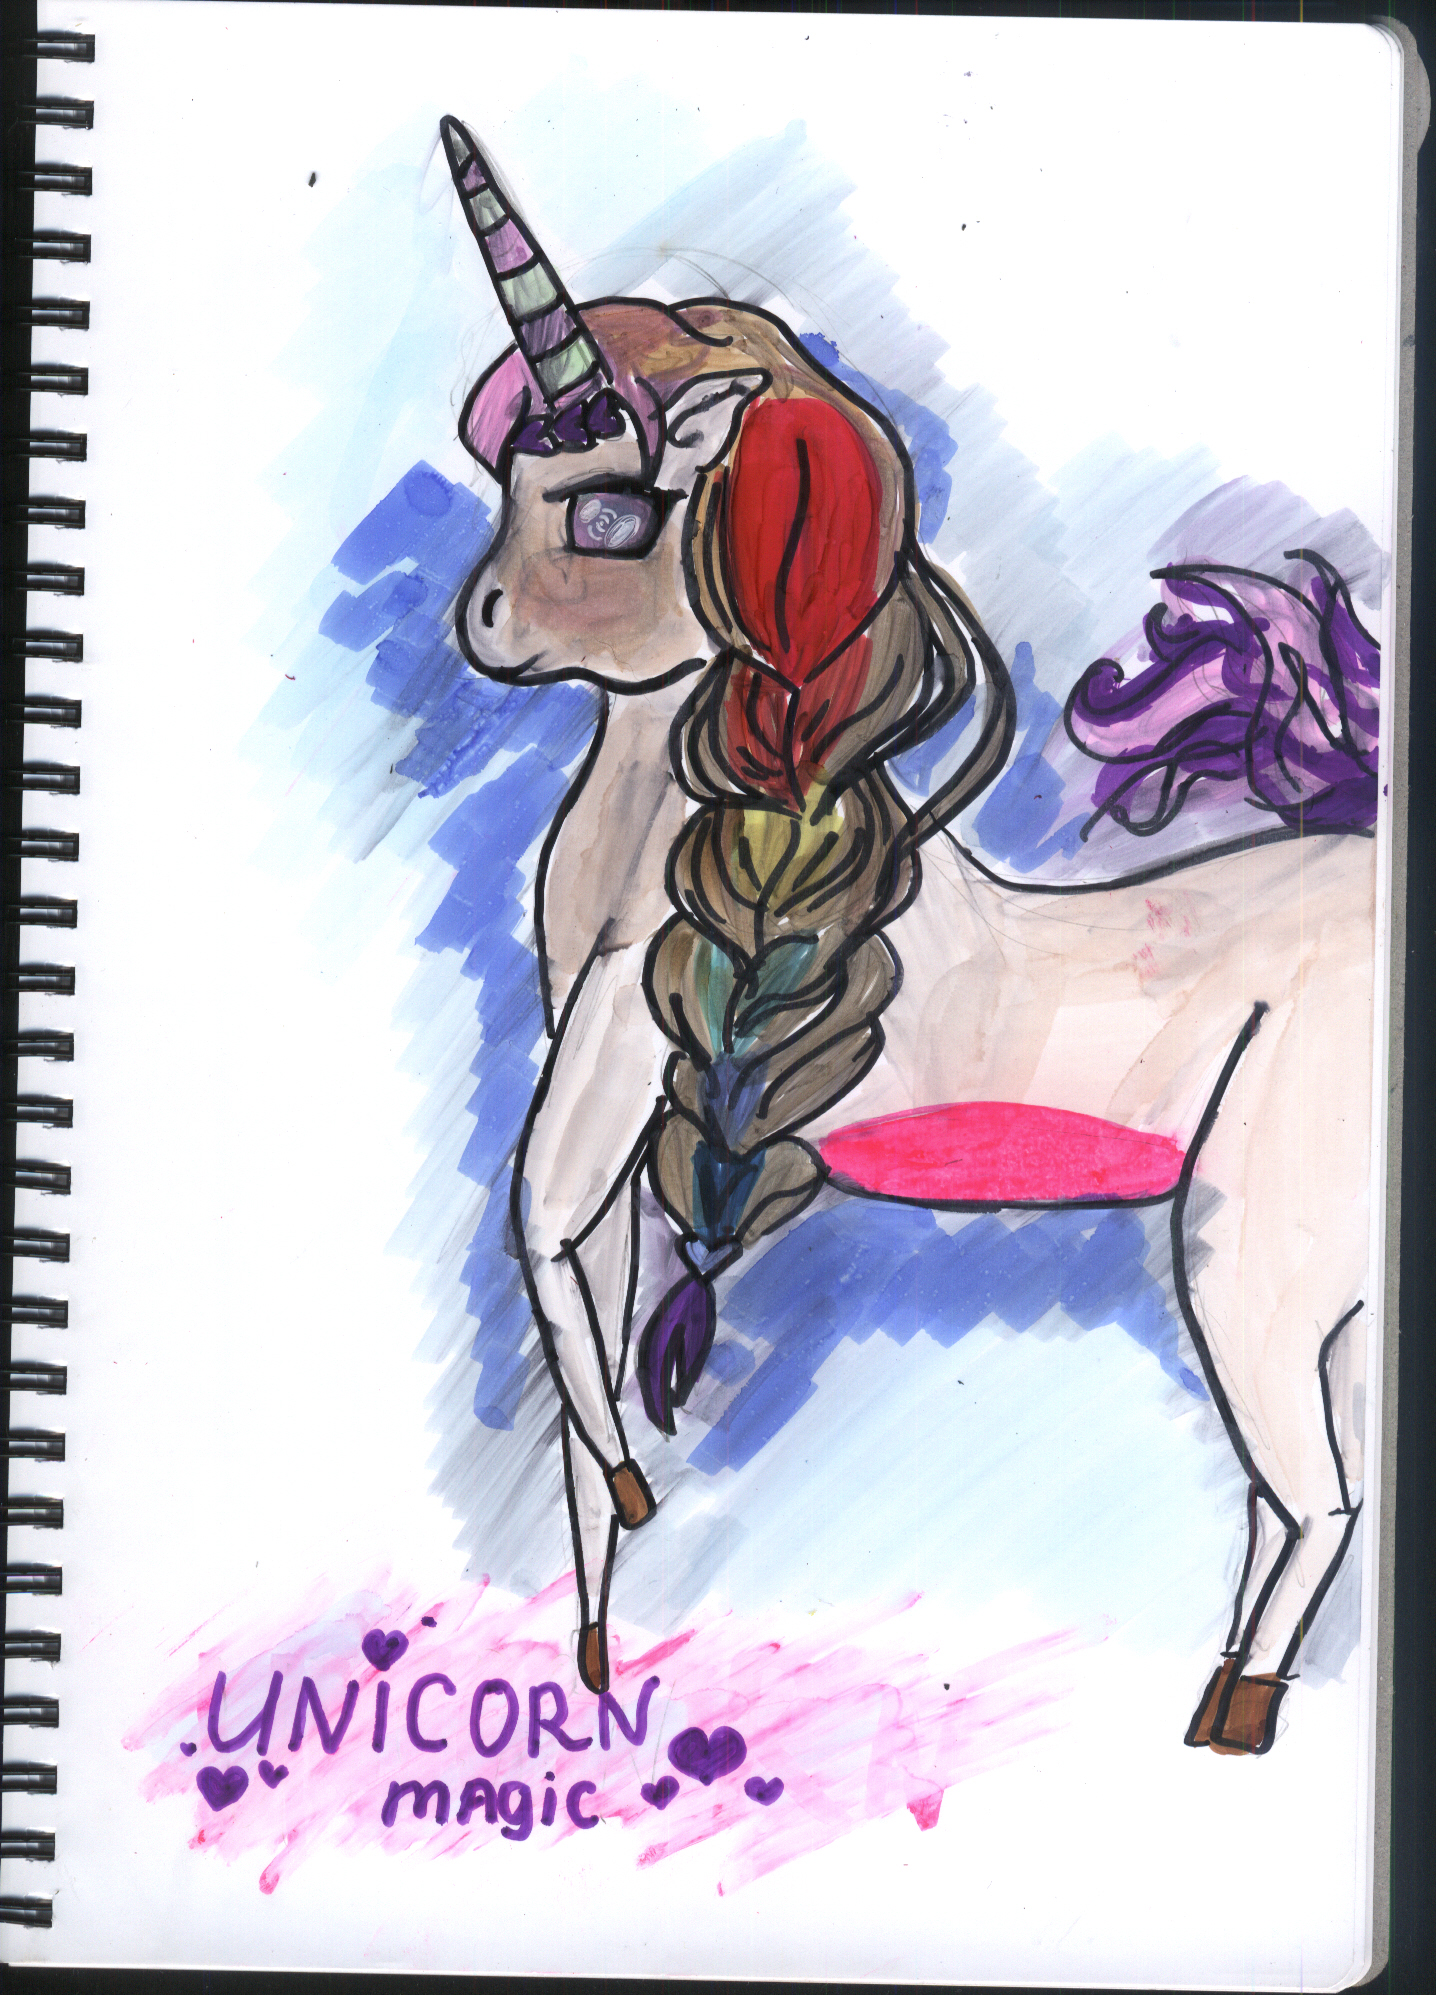 UNiCORN
mAgic